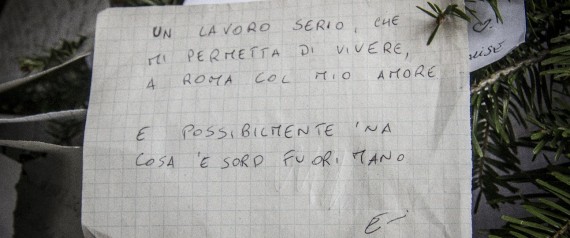 UN LAVORO SERIO, CHE
MI PERMETTA DI VIVERE,
A ROMA COL MIO AMORE
E POSSIBILMENTE 'NA
COSA 'E SORD FUORI MANO